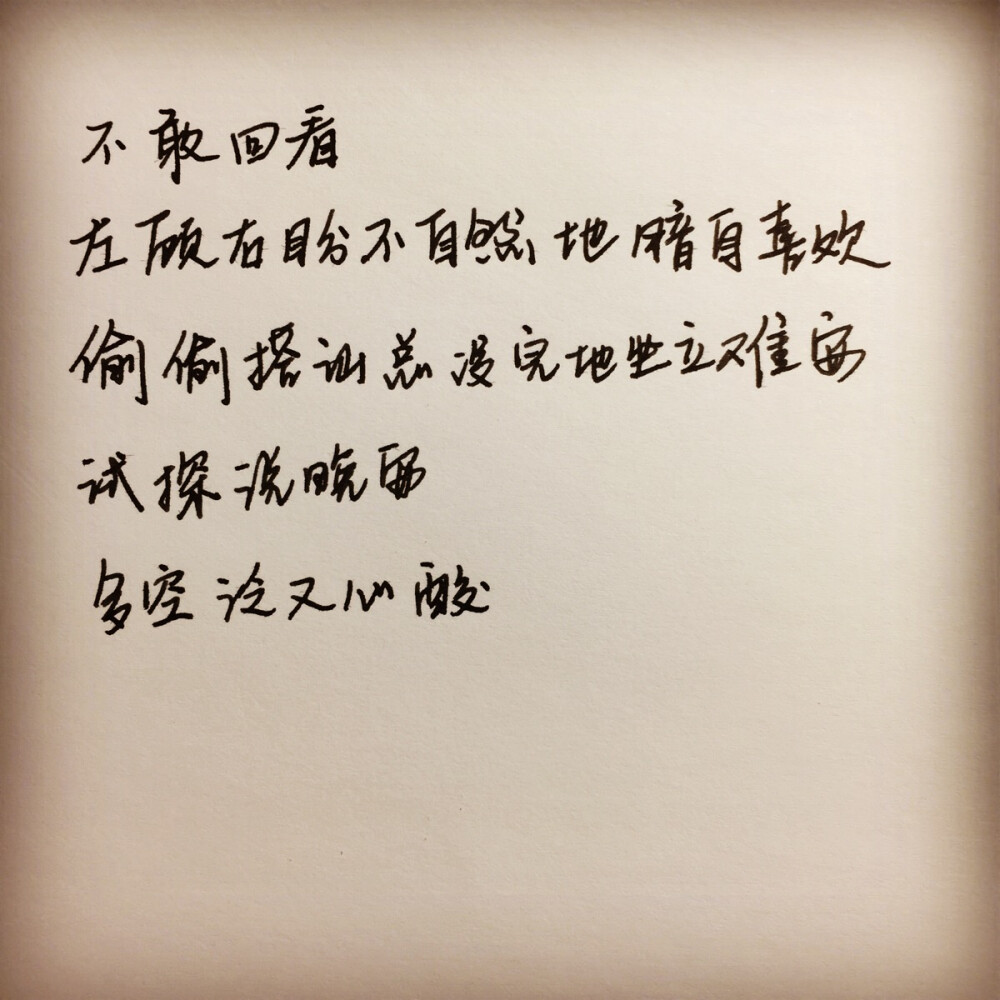 不敢回看
左顾右盼不自然地暗自喜欢
偷偷搭讪总没完地坐立难安
试探说晚安
多空泛又心酸